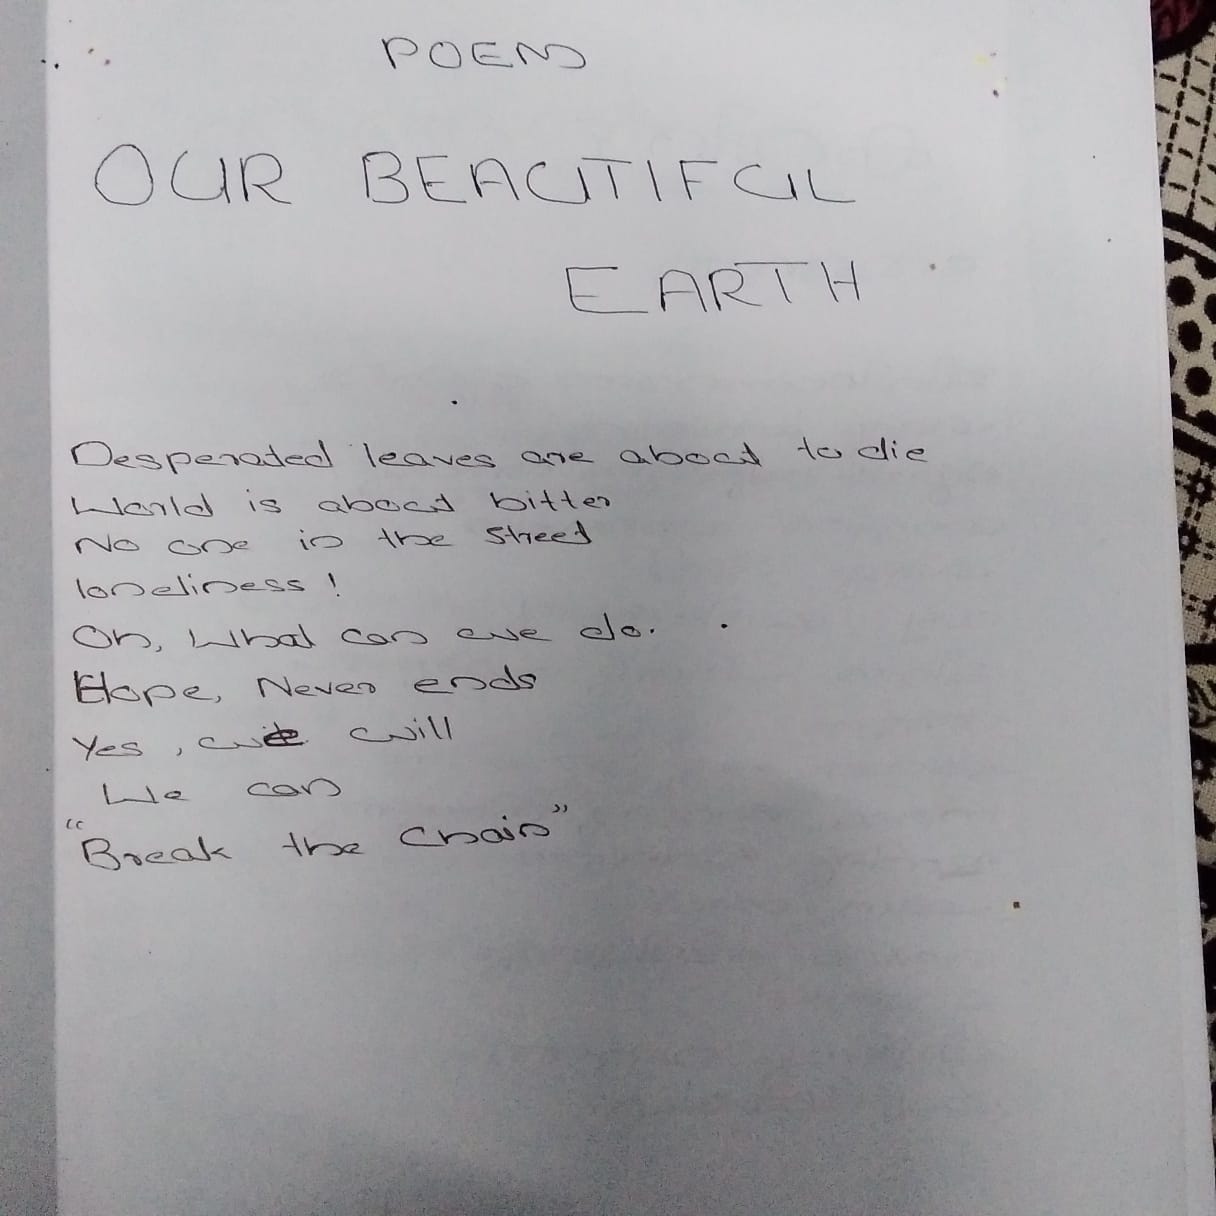 POEM
OUR BEAUTIFUL
EARTH
Desperated leaves are about to die
World is about bitter
No one in the street
loneliness!
Oh, What can we do.
Hope, Never ends
Yes, we will
We can
"Break the Chain"